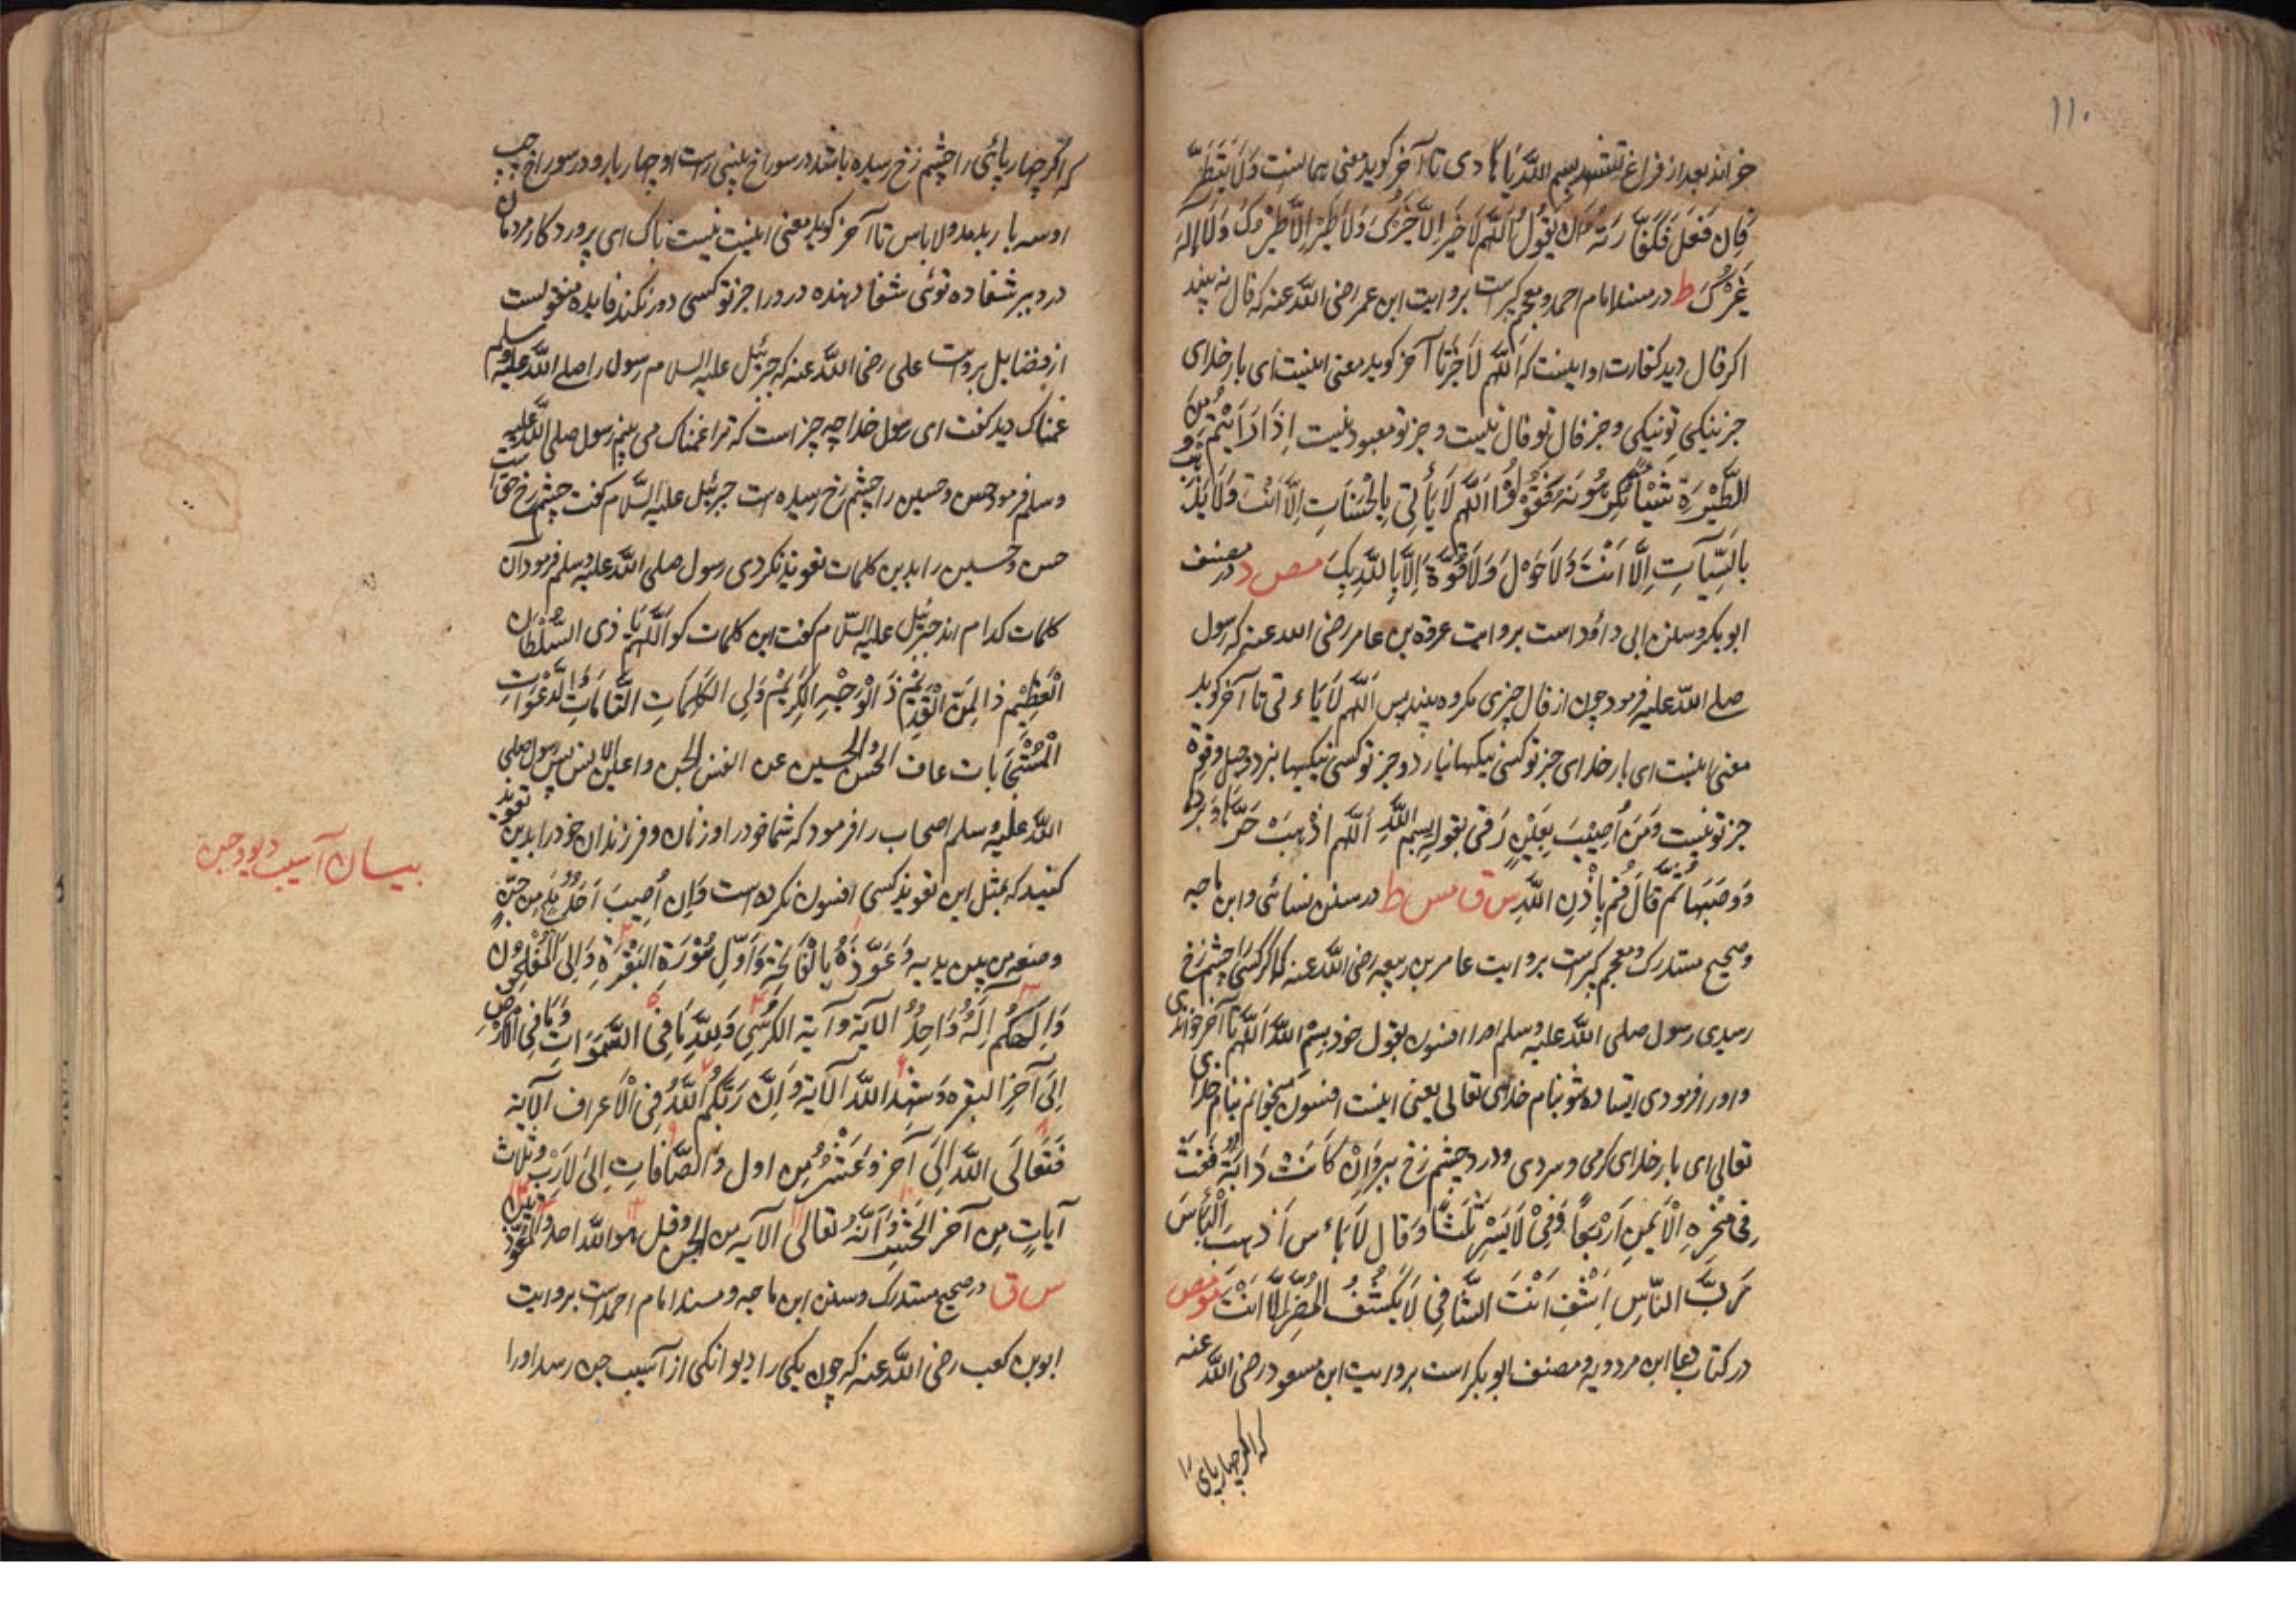 ۱۱۰
خواند بعد از فراغ بسم الله یا هادی تا آخر کوید معنی همانست وَلَا یَتَطَیَّر
فَاِن فَعَلَ فَكَفَّارَتُهُ اَن یَقُولَ اَللّٰهُمَّ لَا خَیرَ اِلَّا خَیرُكَ وَلَا طَیْرَ اِلَّا طَیْرُكَ وَلَا اِلٰهَ
غَیْرُكَ ط در مسند امام احمد و معجم کبیر است بروایت ابن عمر رضی الله عنه که فال نه بیند
اکر فال دید کفارت او اینست که اللّٰهم لَا خیر تا آخر کوید معنی اینست ای بار خدای
جز نیکی تو نیکی و جز فال تو فال نیست و جز تو معبود نیست اِذَا رَاَیْتُم مِن
الطِّیَرَةِ شَیْئًا تَكرَهُونَهُ فَقُولُوْا اَللّٰهُمَّ لَا یَأتِی بِالحَسَنَاتِ اِلَّا اَنْتَ وَلَا یَذْهَبُ
بِالسَّیِّآتِ اِلَّا اَنْتَ وَلَا حَوْلَ وَلَا قُوَّةَ اِلَّا بِاللّٰهِ بِكَ مص د در مصنف
ابو بکر و سنن ابی داؤد است بروایت عروة بن عامر رضی الله عنه که رسول
صلے الله علیه فرمود چون از فال چیزی مکروه بیند پس اَللّٰهُمَّ لَا یَاءتی تا آخر کوید
معنی اینست ای بار خدای جز تو کسی نیکیها نیارد و جز تو کسی نیکیها نبرد و حیل و قوة
جز تو نیست وَمَن اُصِیْبَ بِعَیْنٍ رَقی بقوله بِسمِ اللّٰهِ اَللّٰهُمَّ اذْهِبْ حَرَّهَا وَبَردَهَا
وَوَصَبَهَا ثُمَّ قَالَ قُم بِاِذْنِ اللّٰهِ س ق مس ط در سنن نسائی و ابن ماجه
و صحیح مستدرک و معجم کبیر است بروایت عامر بن ربیعه رضی الله عنه که اکر کسی را چشم زخ
رسیدی رسول صلی الله علیه وسلم او را افسون بقول خود بِسْمِ اللّٰهِ اللّٰهم تا آخر خواندی
و او را فرمودی ایستاده شو بنام خدای تعالی یعنی اینست افسون میخوانم بنام خدای
تعالی ای بار خدای کرمی و سردی و درد چشم زخ ببر وَاِنْ كَانَتْ دَابَّةً نَفَثَ
فِی مَنْخِرِهِ الْاَیْمَنِ اَرْبَعًا وَفِیْ الْاَیْسَرِ ثَلٰثًا وَقَال لَا بَاءس اَذْهِبِ الْبَأسَ
رَبَّ النَّاسِ اِشْفِ اَنْتَ الشَّافِی لَا یَكْشِفُ الضُّرَّ اِلَّا اَنْتَ مو مص
در کتاب دعا ابن مردویه و مصنف ابو بکر است بروایت ابن مسعود رضی الله عنه
که اکر چهارپای را
که اکر چهارپائی را چشم زخ رسیده باشد در سوراخ بینی راست او چهار بار و در سوراخ چپ
او سه بار بدمد و لا باس تا آخر کوید معنی اینست نیست باک ای پروردکار مردمان
درد ببر شفا ده توئی شفا دهنده درد را جز تو کسی دور نکند فایده منقولست
از فضایل بروایت علی رضی الله عنه که جبرئیل علیه السلام رسول را صلے الله علیه وسلم
غمناک دید کفت ای رسول خدا چه چیز است که ترا غمناک می بینم رسول صلی الله علیه
وسلم فرمود حسن و حسین را چشم زخ رسیده است جبرئیل علیه السّلام کفت چشم زخ حق است
حسن و حسین را بدین کلمات تعویذ نکردی رسول صلی الله علیه وسلم فرمود آن
کلمات کدام اند جبرئیل علیه السّلام کفت این کلمات کو اَللّٰهُمَّ یَا ذی السُّلْطَان
الْعَظِیْمِ ذا المَنِّ الْقَدِیْمِ ذَالْوَجْهِ الْكَرِیْمْ وَلِی الكَلِمَاتِ التَّامَّاتِ الدَّعْوَاتِ
الْمُسْتَجَابَات عاف الحسن و الحسین عن انفس الجن و اعین الانس پس رسول صلی
الله علیه وسلم اصحاب را فرمود که شما خود را و زنان و فرزندان خود را بدین تعویذ
کنید که بمثل این تعویذ کسی افسون نکرده است وَاِن اُصِیبَ اَحَدٌ بِلَمَمٍ مِن جِنٍّ
وضعه من بین یدیه وَعَوَّذَهُ بِالْفَاتِحَةِ وَاَوَّلِ سُوْرَةِ البَقَرَةِ اِلیَ الْمُفْلِحُوْن
وَاِلٰهُكُم اِلٰهٌ وَاحِدٌ الآیَة وآیة الکرسی وَلِلّٰهِ مَا فِی السَّمٰوَاتِ وَمَا فِی الْاَرْضِ
اِلیَ آخِرِ البقره وَشَهِدَ اللّٰه الآیَة وَاِنَّ رَبَّكُمُ اللّٰهُ فِی الْاَعراف الآیة
فَتَعَالَی اللّٰه اِلَی آخر وَعَشْرٌ مِن اول وَالصَّافَاتِ اِلیَ لَازِبٍ وثلاث
آیاتٍ مِن آخر الحَشْرِ وَاَنَّهُ تعالی الآیه من الجن و قل هو الله احد والمعوّذتین
س ق در صحیح مستدرک و سنن ابن ماجه و مسند امام احمد است بروایت
ابو بن کعب رضی الله عنه که چون یکی را دیوانکی از آسیب جن رسد او را
بیان آسیب دیو و جن